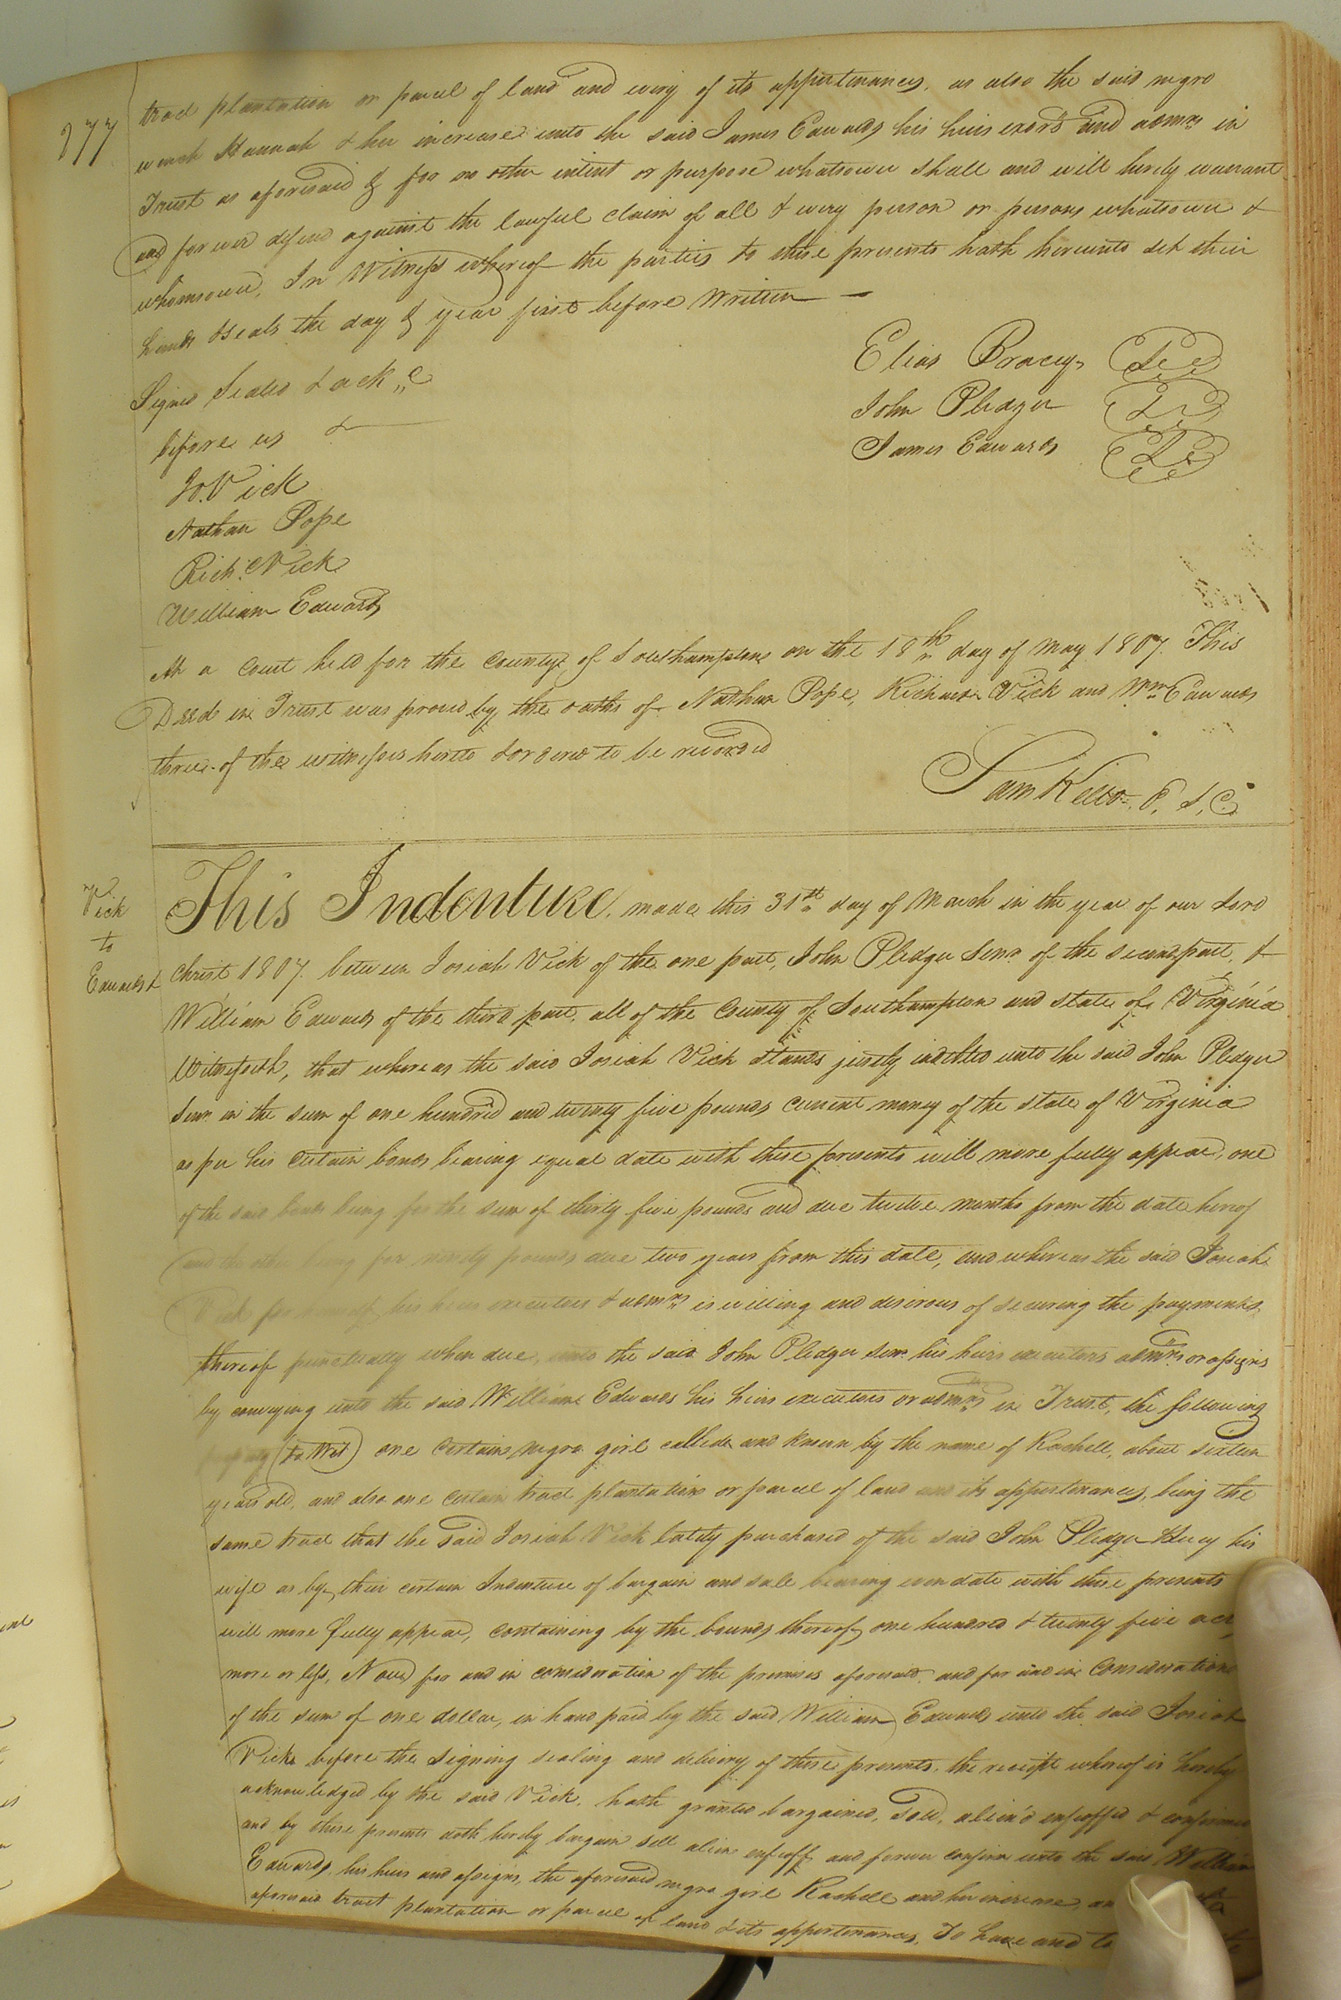 277
tract plantation or parcel of land and every of its appertenances, as also the said negro
wench Hannah & her increase unto the said James Edwards his heirs exors and admrs in
Trust as aforesaid & for no other intent or purpose whatsoever shall and will hereby warrant
and forever defend against the lawful claim of all & every person or persons whatsoever &
whomsoever, In Witness whereof the parties to these presents hath hereunto set their
hands & seals the day & year first before Written —
Elias Bracey
John Pledger
James Edwards
Signed Sealed & ack
before us
Jo. Vick
Nathan Pope
Rich. Vick
William Edwards
At a Court held for the County of Southampton on the 18th day of May 1807. This
Deed in Trust was proved by the oaths of Nathan Pope, Richard Vick and Wm Edwards
three of the witnesses hereto & ordered to be recorded
Sam Kello, C. S. C.
Vick
to
Edwards
This Indenture, made this 31st day of March in the year of our Lord
Christ 1807. between Josiah Vick of the one part, John Pledger Senr of the second part, &
William Edwards of the third part, all of the County of Southampton and state of Virginia
Witnesseth, that whereas the said Josiah Vick stands justly indebted unto the said John Pledger
Senr in the sum of one hundred and twenty five pounds current money of the state of Virginia
as per his certain bonds bearing equal date with these presents will more fully appear, one
of the said bonds being for the sum of thirty five pounds and due twelve months from the date hereof
and the other being for ninety pounds due two years from this date, and whereas the said Josiah
Vick for himself, his heirs executors & admrs is willing and desirous of securing the payments
thereof punctually when due, unto the said John Pledger Senr his heirs executors admrs or assigns
by conveying unto the said William Edwards his heirs executors or admrs in Trust, the following
property (to Wit) one certain negro girl called and known by the name of Rachell, about sixteen
years old, and also one certain tract plantation or parcel of land and its appertenances, being the
same tract that the said Josiah Vick lately purchased of the said John Pledger & Lucy his
wife as by their certain Indenture of bargain and sale bearing even date with these presents
will more fully appear, containing by the bounds thereof one hundred & twenty five
more or less, Now for and in consideration of the premises aforesaid and for and in consideration
of the sum of one dollar, in hand paid by the said William Edwards unto the said Josiah
Vick before the signing sealing and delivery of these presents, the receipt whereof is hereby
acknowledged by the said Vick, hath granted bargained, Sold, alien'd enfeoffed & confirmed
and by these presents doth hereby bargain sell alien enfeoff and forever confirm unto the said William
Edwards, his heirs and assigns, the aforesaid negro girl Rachell and her increase,
aforesaid tract plantation or parcel of land & its appertenances, To have and to